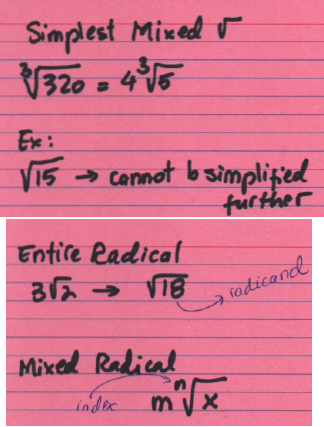 Simplest Mixed √
³√320 = 4 ³√5
Ex:
√15 → cannot b simplified
further
Entire Radical
3√2 → √18
radicand
Mixed Radical
index
m ⁿ√x